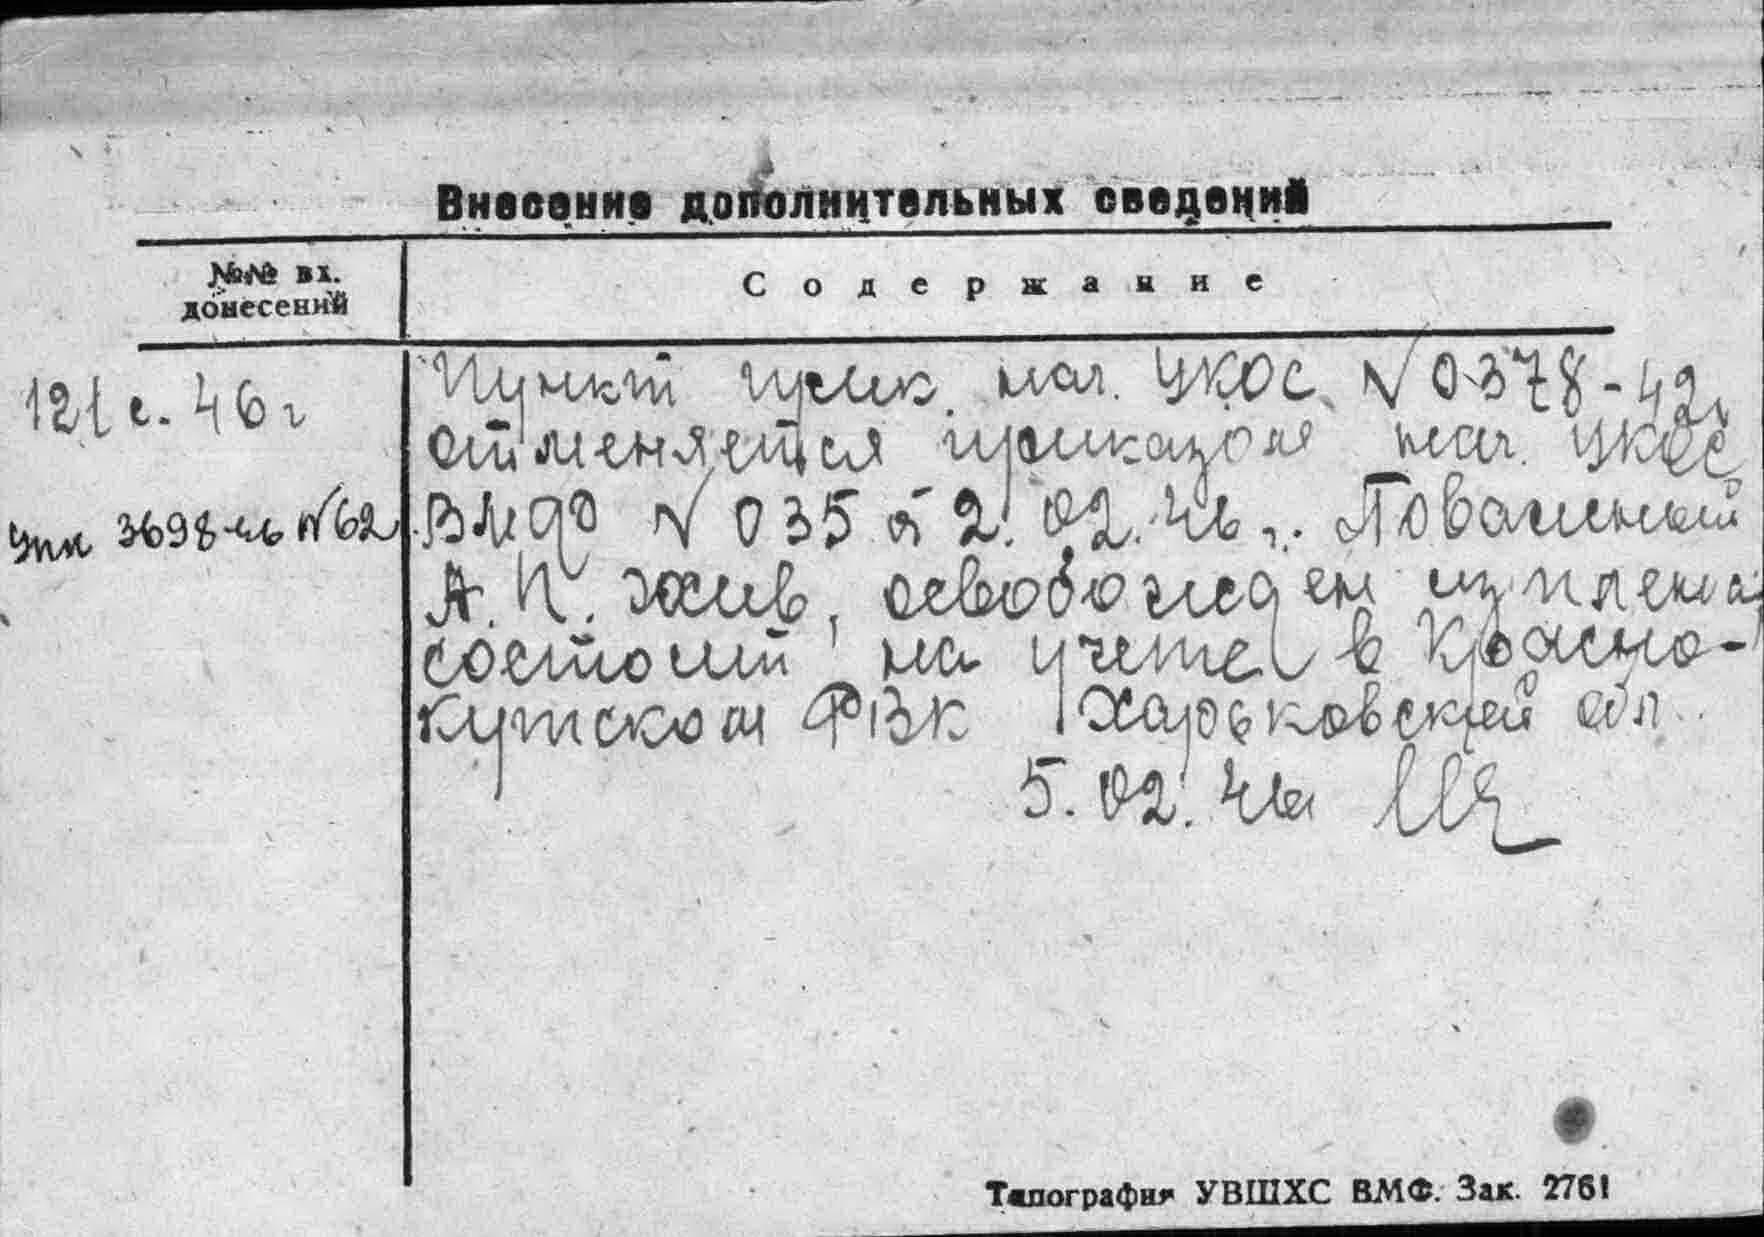 Внесение дополнительных сведений
№№ вх.
донесений
Содержание
121 с. 46 г
Пункт прик. нач. УКОС N 0378-42г
отменяется приказом нач. УКОС
упк 3698-46 N62
ВМФ N 035 от 2.02.46г. Поважный
А. П. жив, освобожден из плена
состоит на учете в Красно-
кутском РВК Харьковской обл.
5.02.46г
Типография УВШХС ВМФ. Зак. 2761